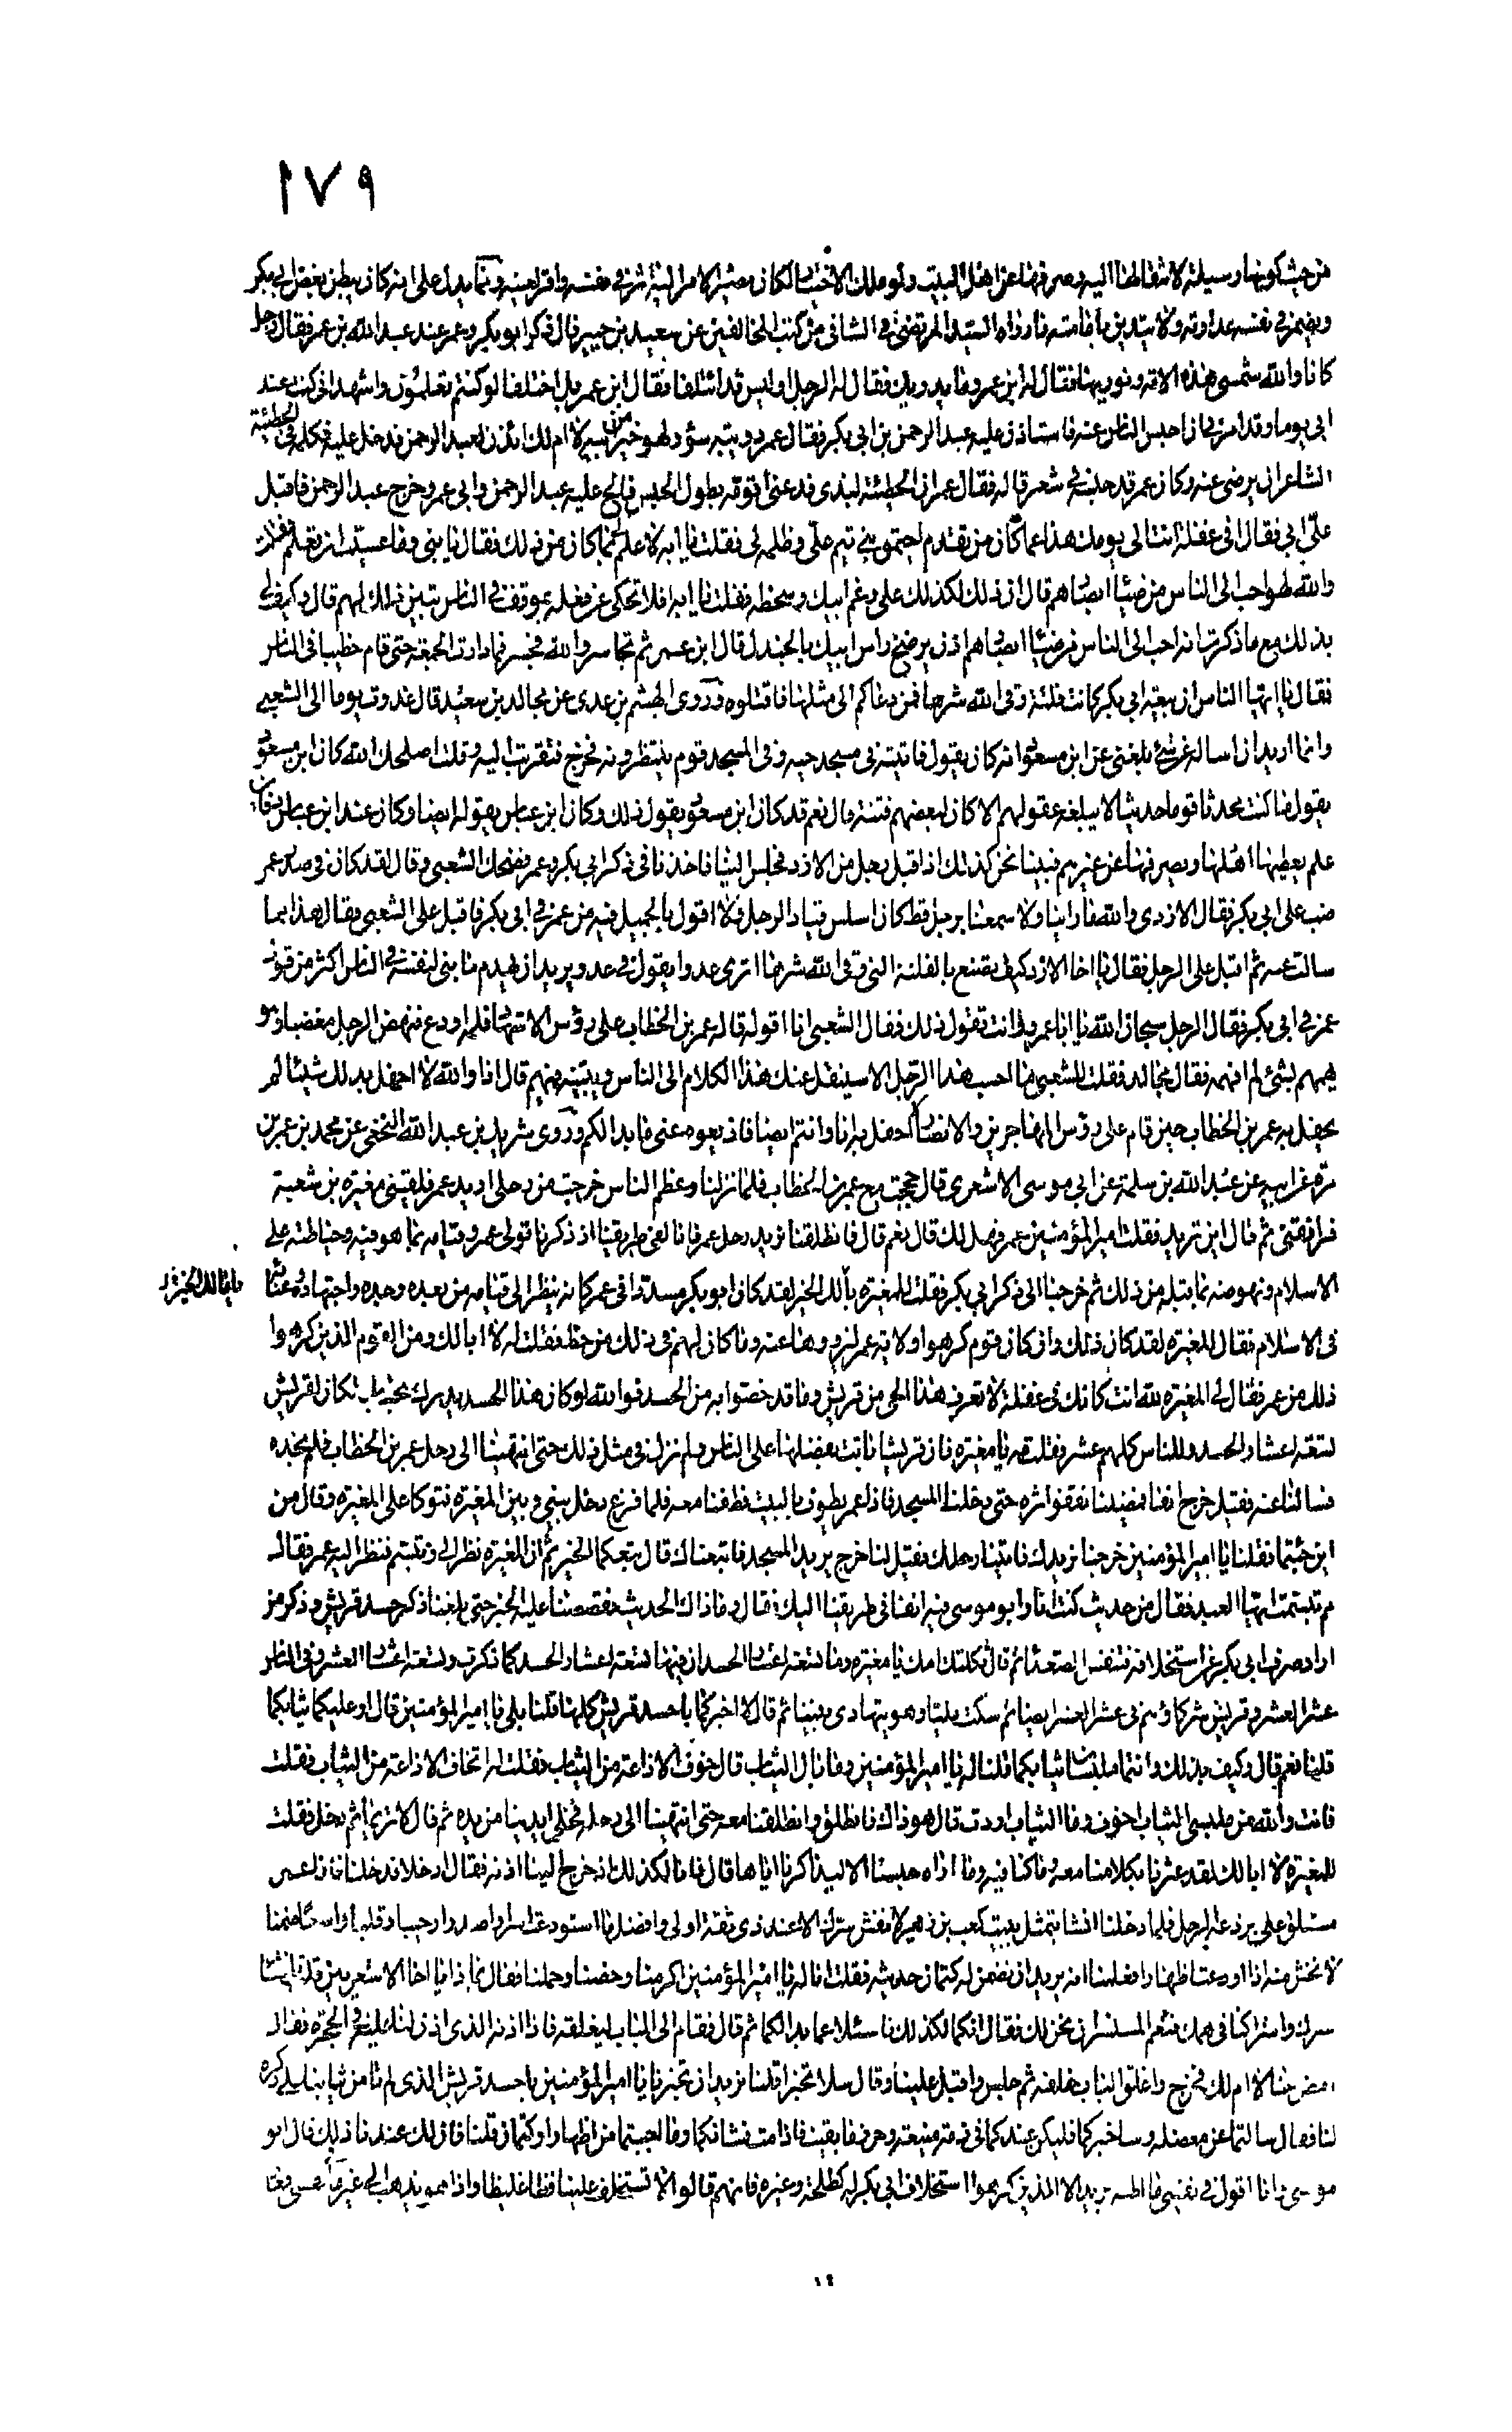 ١٧٩
من حيث كونها وسيلة لانتقالها اليه وصرفها عن اهل البيت ولو ملك الاختيار لكان مصير الامر اليه في نفسه ومما يدل على انه كان يبطن بغض ابي بكر
ويضمر في نفسه عداوته ما رواه السيد المرتضى في الشافي من كتب المخالفين عن سعيد بن جبير قال ذكر ابو بكر وعمر عند عبد الله بن عمر فقال رجل
كانا والله شمسي هذه الامة ونوريها فقال له ابن عمر وما يدريك فقال له الرجل اوليس قد ائتلفا فقال ابن عمر بل اختلفا لو كنتم تعلمون واشهد اني كنت عند
ابي يوما وقد امرني ان احبس الناس عنه فاستاذن عليه عبد الرحمن بن ابي بكر فقال عمر دويبة سوء ولهو خير من ابيه لا ام لك ائذن لعبد الرحمن فدخل عليه فكلمه في الحطيئة
الشاعر ان يرضى عنه وكان عمر قد حبسه في شعر قاله فقال عمر ان الحطيئة لبذي فدعني اقومه بطول الحبس فالح عليه عبد الرحمن وابى عمر وخرج عبد الرحمن فاقبل
علي ابي فقال افي غفلة انت الى يومك هذا عما كان من تقدم احيمق بني تيم علي وظلمه لي فقلت يا ابه لا علم لي بما كان من ذلك فقال يا بني وما عسيت ان تعلم فقلت
والله لهو احب الى الناس من ضياء ابصارهم قال ان ذلك لكذلك على رغم ابيك وسخطه فقلت يا ابه افلا تحكي عن فعله بموقف في الناس تبين ذلك لهم قال وكيف لي
بذلك مع ما ذكرت انه احب الى الناس من ضياء ابصارهم اذن يرضخ راس ابيك بالجندل قال ابن عمر ثم تجاسر والله فجسر فما دارت الجمعة حتى قام خطيبا في الناس
فقال يا ايها الناس ان بيعة ابي بكر كانت فلتة وقى الله شرها فمن دعاكم الى مثلها فاقتلوه وروى الهيثم بن عدي عن مجالد بن سعيد قال غدوت يوما الى الشعبي
وانما اريد ان اساله عن شيء بلغني عن ابن مسعود انه كان يقول فاتيته في مسجد حيه وفي المسجد قوم ينتظرونه فخرج فتقربت اليه وقلت اصلحك الله كان ابن مسعود
يقول ما كنت محدثا قوما حديثا لا يبلغه عقولهم الا كان لبعضهم فتنة قال نعم قد كان ابن مسعود يقول ذلك وكان ابن عباس يقوله ايضا وكان عند ابن عباس دفاين
علم يعطيها اهلها ويصرفها عن غيرهم فبينا نحن كذلك اذ اقبل رجل من الازد فجلس الينا فاخذنا في ذكر ابي بكر وعمر فضحك الشعبي وقال لقد كان في صدر عمر
ضب على ابي بكر فقال الازدي والله ما راينا ولا سمعنا برجل قط كان اسلس قيادا لرجل ولا اقول بالجميل فيه من عمر في ابي بكر فاقبل علي الشعبي فقال هذا مما
سالت عنه ثم اقبل على الرجل فقال يا اخا الازد كيف تصنع بالفلتة التي وقى الله شرها اترى عدوا يقول في عدو يريد ان يهدم ما بنى لنفسه في الناس اكثر من قول
عمر في ابي بكر فقال الرجل سبحان الله يا ابا عمرو انت تقول ذلك فقال الشعبي انا اقوله قاله عمر بن الخطاب على رؤس الاشهاد فلمه اودع فنهض الرجل مغضبا وهو
يهمهم بشيء لم افهمه فقال مجالد فقلت للشعبي ما احسب هذا الرجل الا سينقل عنك هذا الكلام الى الناس ويبثه فيهم قال اذا والله لا احفل بذلك شيئا لم
يحفل به عمر بن الخطاب حين قام على رؤس المهاجرين والانصار احفل به انا وانتم ايضا فاذيعوه عني ما بدا لكم وروى شريك بن عبد الله النخعي عن محمد بن عمرو بن
مرة عن ابيه عن عبد الله بن سلمة عن ابي موسى الاشعري قال حججت مع عمر بن الخطاب فلما نزلنا وعظم الناس خرجت من رحلي اريد عمر فلقيني مغيرة بن شعبة
فرافقني ثم قال اين تريد فقلت امير المؤمنين عمر فهل لك قال نعم قال فانطلقنا نريد رحل عمر فانا لفي طريقنا اذ ذكرنا تولي عمر وقيامه بما هو فيه وحياطته على
الاسلام ونهوضه بما قبله من ذلك ثم خرجنا الى ذكر ابي بكر فقلت للمغيرة يا لك الخير لقد كان ابو بكر مسددا في عمر كانه ينظر الى قيامه من بعده وجده واجتهاده وغنائه
في الاسلام فقال المغيرة لقد كان ذلك وان كان قوم كرهوا ولاية عمر ليزووها عنه وما كان لهم في ذلك من حظ فقلت له لا ابا لك ومن القوم الذين كرهوا
ذلك من عمر فقال لي المغيرة لله انت كانك في غفلة لا تعرف هذا الحي من قريش وما قد خصوا به من الحسد فوالله لو كان هذا الحسد يدرك بحساب لكان لقريش
تسعة اعشار الحسد وللناس كلهم عشر فقلت مه يا مغيرة فان قريشا بانت بفضلها على الناس ولم نزل في مثل ذلك حتى انتهينا الى رحل عمر بن الخطاب فلم نجده
فسالنا عنه فقيل خرج انفا فمضينا نقفو اثره حتى دخلنا المسجد فاذا عمر يطوف بالبيت فطفنا معه فلما فرغ دخل بيني وبين المغيرة فتوكا على المغيرة وقال من
اين جئتما فقلنا يا امير المؤمنين خرجنا نريدك فاتينا رحلك فقيل لنا خرج يريد المسجد فاتبعناك قال تبعكما الخير ثم ان المغيرة نظر الي وتبسم فنظر اليه عمر فقال
مم تبسمت ايها العبد فقال من حديث كنت انا وابو موسى فيه انفا في طريقنا اليك فقال وما ذاك الحديث فقصصنا عليه الخبر حتى بلغنا ذكر حسد قريش وذكر من
اراد صرف ابي بكر عن استخلافه فتنفس الصعداء ثم قال ثكلتك امك يا مغيرة وما تسعة اعشار الحسد ان فيها لتسعة اعشار الحسد كما ذكرت وتسعة اعشار العشر وفي الناس
عشر العشر وقريش شركاؤهم في عشر العشر ايضا ثم سكت مليا وهو يتهادى بيننا ثم قال الا اخبركما باحسد قريش كلها قلنا بلى يا امير المؤمنين قال اوعليكما ثيابكما
قلنا نعم قال وكيف بذلك وانتما ملبسان ثيابكما قلنا له يا امير المؤمنين وما بال الثياب قال خوف الاذاعة من الثياب فقلت له اتخاف الاذاعة من الثياب فقلت
فانت والله من ملبسي الثياب اخوف وما الثياب اردت قال هو ذاك فانطلق وانطلقنا معه حتى انتهينا الى رحله فخلى ايدينا من يده ثم قال لا تريما ثم دخل فقلت
للمغيرة لا ابا لك لقد عثرنا بكلامنا معه وما كنا فيه وما اراه حبسنا الا ليذاكرنا اياها قال فانا لكذلك اذ خرج الينا اذنه فقال ادخلا فدخلنا فاذا عمر
مستلق على برذعة الرحل فلما دخلنا انشا يتمثل ببيت كعب بن زهير لا تفش سرك الا عند ذي ثقة اولى وافضل ما استودعت اسرارا صدرا رحيبا وقلبا واسعا ضمنا
لا تخش منه اذا اودعت اظهارا فعلمنا انه يريد ان نضمن له كتمان حديثه فقلت انا له يا امير المؤمنين اكرمنا وخصنا وصلنا فقال بماذا يا اخا الاشعريين قلت بافشاء
سرك واشركنا في همك فنعم المستسران نحن لك فقال انكما لكذلك فاسئلا عما بدا لكما ثم قال فقام الى الباب ليغلقه فاذا اذنه الذي اذن لنا عليه في الحجرة فقال
امض عنا لا ام لك فخرج واغلق الباب خلفه ثم جلس واقبل علينا وقال سلا تخبرا قلنا نريد ان تخبرنا يا امير المؤمنين باحسد قريش الذي لم تامن ثيابنا على ذكره
لنا فقال سالتما عن معضلة وساخبركما فليكن عندكما في ذمة منيعة وحرز ما بقيت فاذا مت فشانكما وما احببتما من اظهار او كتمان قلنا فان لك عندنا ذلك قال ابو
موسى وانا اقول في نفسي ما اظنه يريد الا الذين كرهوا استخلاف ابي بكر له كطلحة وغيره فانهم قالوا لا تستخلف علينا فظا غليظا واذا هو يذهب الى غير ما في نفسي
١٤